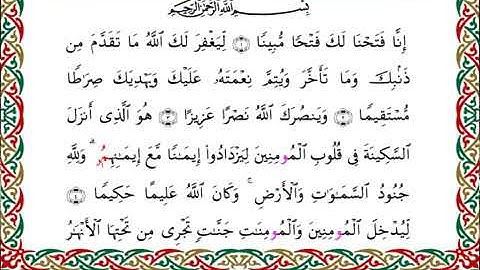 بِسْمِ اللَّهِ الرَّحْمَٰنِ الرَّحِيمِ
إِنَّا فَتَحْنَا لَكَ فَتْحًا مُّبِينًا ۝١ لِّيَغْفِرَ لَكَ اللَّهُ مَا تَقَدَّمَ مِن
ذَنۢبِكَ وَمَا تَأَخَّرَ وَيُتِمَّ نِعْمَتَهُۥ عَلَيْكَ وَيَهْدِيَكَ صِرَٰطًا
مُّسْتَقِيمًا ۝٢ وَيَنصُرَكَ اللَّهُ نَصْرًا عَزِيزًا ۝٣ هُوَ الَّذِى أَنزَلَ
السَّكِينَةَ فِى قُلُوبِ الْمُومِنِينَ لِيَزْدَادُوا۟ إِيمَٰنًا مَّعَ إِيمَٰنِهِمُۥ ۗ وَلِلَّهِ
جُنُودُ السَّمَٰوَٰتِ وَالْأَرْضِ ۚ وَكَانَ اللَّهُ عَلِيمًا حَكِيمًا ۝٤
لِّيُدْخِلَ الْمُومِنِينَ وَالْمُومِنَٰتِ جَنَّٰتٍ تَجْرِى مِن تَحْتِهَا الْأَنْهَٰرُ